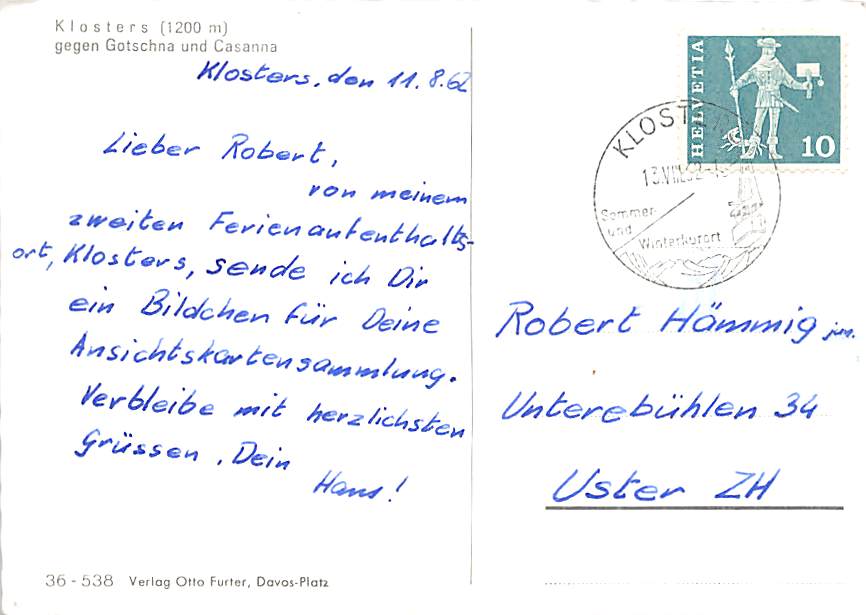 Klosters (1200 m)
gegen Gotschna und Casanna
Klosters, den 11.8.62
Lieber Robert,
von meinem
zweiten Ferienaufenthalts-
ort, Klosters, sende ich Dir
ein Bildchen für Deine
Ansichtskartensammlung.
Verbleibe mit herzlichsten
Grüssen, Dein
Hans!
36-538 Verlag Otto Furter, Davos-Platz
HELVETIA
10
KLOSTERS
13.VIII.62
Sommer
und
Winterkurort
Robert Hämmig jun.
Unterebühlen 34
Uster ZH